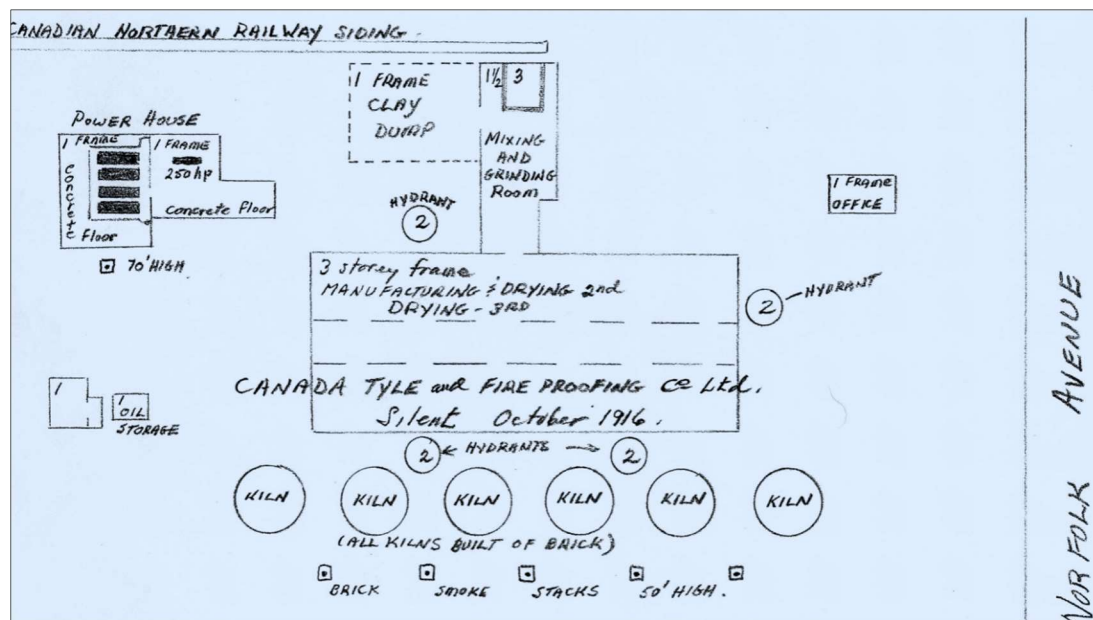 CANADIAN NORTHERN RAILWAY SIDING
1 FRAME
CLAY
DUMP
1½ 3
MIXING
AND
GRINDING
ROOM
POWER HOUSE
1 FRAME
Concrete
Floor
1 FRAME
250 hp
Concrete Floor
70' HIGH
HYDRANT
2
1 FRAME
OFFICE
3 storey frame
MANUFACTURING & DRYING 2nd
DRYING - 3RD
2 HYDRANT
CANADA TYLE and FIRE PROOFING Co Ltd.
Silent October 1916.
1
1
OIL
STORAGE
2 HYDRANTS 2
KILN KILN KILN KILN KILN KILN
(ALL KILNS BUILT OF BRICK)
BRICK SMOKE STACKS 50' HIGH.
NORFOLK AVENUE